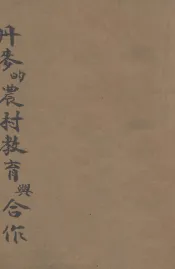 丹麥的農村教育與合作